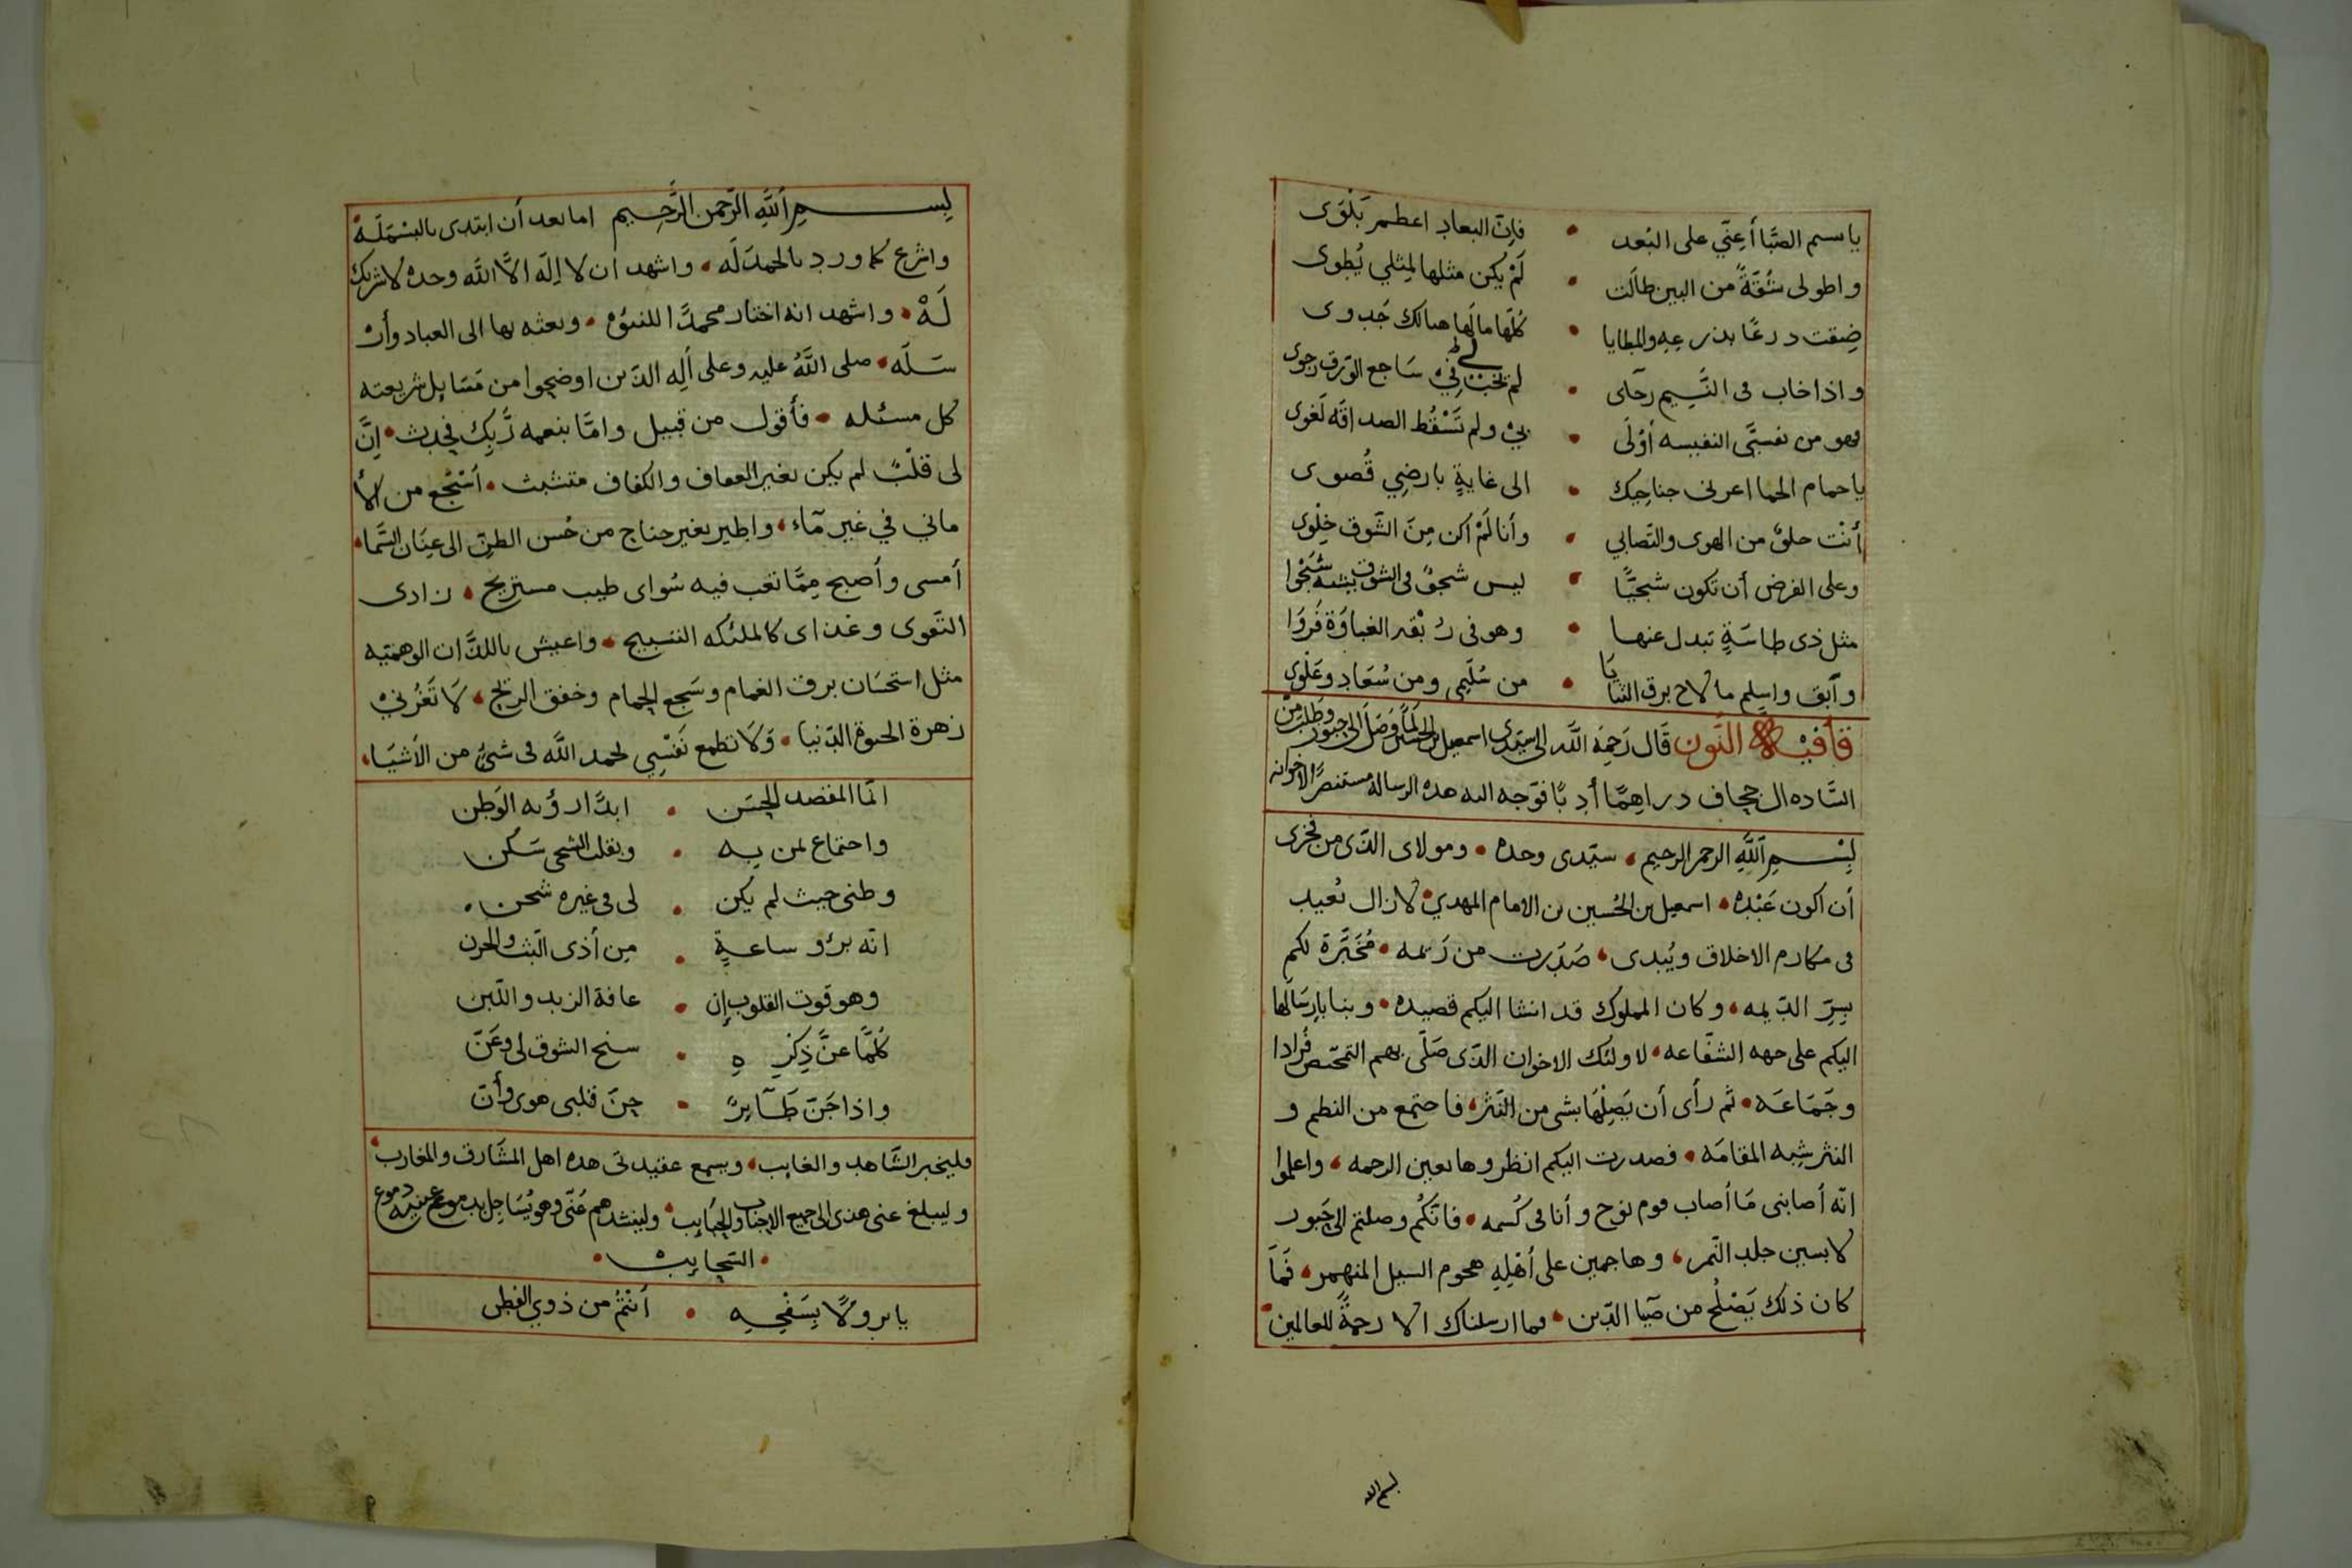 ياسم الصَّبا أعِنّي على البُعد • فإنّ البعاد اعظم بَلْوَى
واطولى شُقّةً من البين طالَت • لَمْ يكن مثلها لمِثلي يُطوى
ضِقت درعًا بذرعِهِ والمطايا • كلّها مالَها هنالك جَدوى
واذا خاب فى النَّسِيم رجآى • لم يخب لي فيْ سَاجع الوَرق رجوى
فهو من نفسىَ النفيسه أوْلَى • بيْ ولم تَسْقُط الصداقه لَغوى
يا حمام الحما اعرنى جناحيك • الى غايةٍ بارضِي قُصوى
أنْت خلوٌ من الهوى والتصابي • وأنا لَمْ اكن مِنَ الشّوق خِلْوى
وعلى الفرض أن تكون شجيًّا • ليس شجوٌ فى الشوق يشبه شَجْوا
مثل ذى طاسَةٍ تبدل عنها • وهو فى رُبْقه الغباوَة فَروَا
وآبق واسلم ما لاح برق الثنايَا • من سُلَيمى ومن سُعَاد وعَلْوى
قافيْة النّون قَال رَحِمَه اللّه الى سيّدى اسمعيل بن الحسين لمّا وَصَل الى جبور وَطلبَ من
السّاده ال جحاف دراهِمًا أدبًا فوّجه اليه هذه الرساله مستنصرًا لاخوانه
بِسْمِ اللَّهِ الرحمن الرحيم، سيّدى وحده • ومولاى الذى من فخرى
أن اكون عَبْده • اسمعيل بن الحُسين بن الامام المهديْ • لا زال يُعيد
فى مكارم الاخلاق ويُبدى، صَدَرت من رَيمه • مُخَبَّرة لكم
بِسِّر الدّيمه، وكان المملوك قد انشا اليكم قصيده • وبنا بارسَالها
اليكم على جهه الشفاعه • لاولئك الاخوان الذى صَلّى بهم التمحّص فُرادا
وجَمَاعَه • ثم رأى أن يَصِلْهَا بشى من النّثر، فاجتمع من النظم و
النثر شِبه المقامَه • فصدرت اليكم انظروها بعين الرحمه، واعلموا
انّه أصابنى مَا أصاب قوم نوح وأنا فى كُسمه • فانّكُم وصلتم الى جَبور
لابسين جلد النّمر، وهاجمين على أهْلِهِ هجوم السيل المنهمر، فَمَا
كان ذلك يَصْلُح من ضيا الدّين، فما ارسلناك الا رحمةً للعالمين •
بسم الله
بِسمِ اللَّهِ الرَّحمن الرَّحِيم اما بعد أن ابتدى بالبسْمَلَه •
واشرع كما ورد بالحمدَلَه • واشهد ان لا اِلَه الاَّ اللَّه وحده لا شريك
لَهْ • واشهد انه اختار محمدًا للنبوّه • وبعثه بها الى العباد وأرْ
سَلَه • صلى اللَّهُ عليه وعلى ألِه الذين اوضحوا من مَسَايل شريعته
كل مسئله • فأقول من قبيل وامّا بنعمه رَّبك فحدث • اِنَّ
لى قلْبً لم يكن بغير العفاف والكفاف متشبث • أسْبَح من الأ
ماني في غير مآء، واطير بغير جناج من حُسن الظنّ الى عِنَان السّما •
أمسى وأصبح مِمّا تعب فيه سُواى طيب مستريح، زادى
التّقوى وغذاى كالملئكه التسبيح، واعيش باللذّات الوهميّه
مثل استحسَان برق الغمام وسَجع الحمام وخفق الريّح، لَا تَغُرُنيْ
زهرة الحيوة الدّنيا • وَلَا تطمع نَفْسِي بحمد اللَّه فى شىٍ من الأشيَاء،
انّما المقصد الحِسَن • ابدًا رؤيه الوَطن
واجتماع بمن به • وبقلب الشجى سَكن
وطنى حيث لم يكن • لى فى غيره شجن •
انّه برؤ ساعةٍ • مِن أذى البَّث والحزن
وهو قوت القلوب إن • عافة الزبد واللّبن
كلّما عنَّ ذِكرِ هِ • سنح الشوق لى وعَنّ
واذا حَنّ طَآيرً • حِنّ قلبى هوى وأنّ
فليخبر الشّاهد والغايب، ويسمع عقيدتى هذه اهل المشَارق والمغارب •
وليبلغ عنى هذى الى جميع الاجناب والحبايب • ولينشدهم عَنّى وهو يُسَاجِل بدموع عينيه دموع
• السّحايب •
يا نزولًا بِسَفحِهِ • أنتُمُ من ذوي الفطن